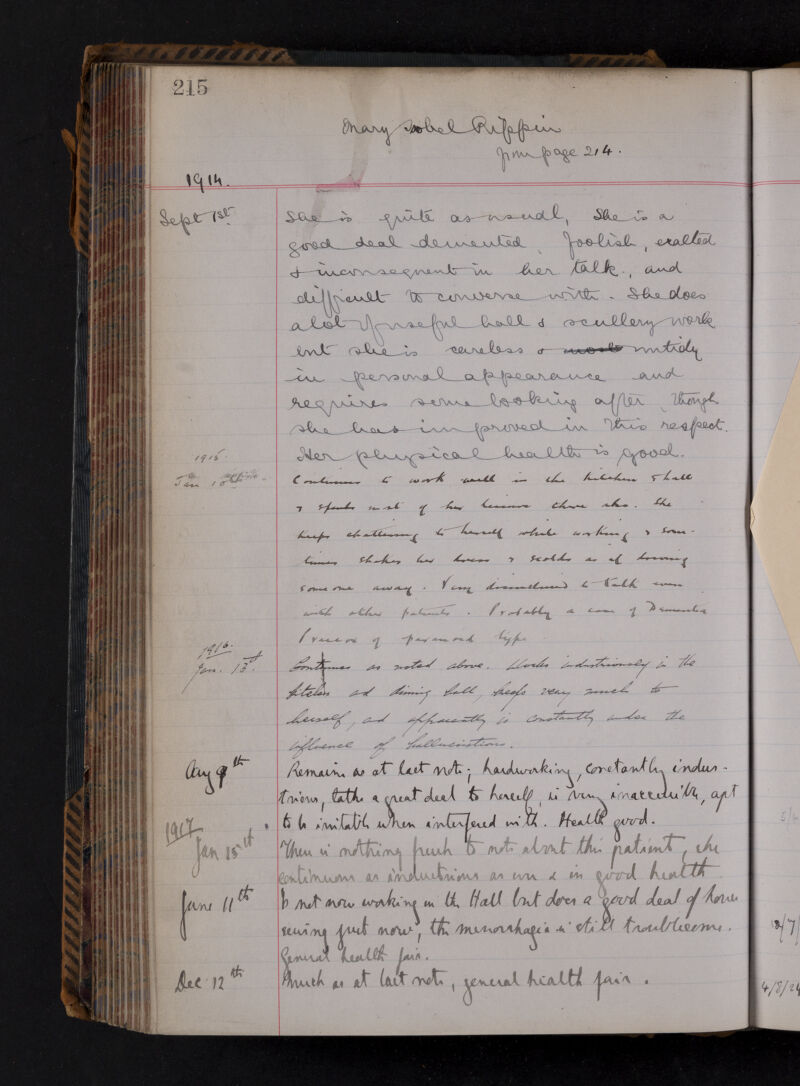 215
Mary Isobel Rippin
from page 214.
1914.
Sept 1st She is quite as usual, She is a
good deal demented, foolish, exalted
& inconsequent in her talk, and
difficult to converse with. She does
a lot of useful hall & scullery work
but she is careless & most untidy
in personal appearance and
requires some looking after, though
she has improved in this respect.
Her physical health is good.
1915.
Jan 10th Continues to work well in the kitchen & hall
& spends most of her time there also. She
keeps chattering to herself while working & some-
times shakes her dress & scolds as if driving
someone away. Very disinclined to talk even
with other patients. Probably a case of Dementia
Praecox of paranoid type.
1916.
Jan. 13th. Continues as noted above. Works industriously in the
kitchen and dining hall, keeps very much to
herself, and apparently is constantly under the
influence of hallucinations.
Aug 9th Remains as at last note; hardworking, constantly indus-
trious, talks a great deal to herself, is very inaccessible, apt
to be irritable when interfered with. Health good.
1917
Jan 15th There is nothing fresh to note about this patient, she
continues as industrious as ever & in good health
June 11th Is not now working in the Hall but does a good deal of house
sewing just now, the menorrhagia is still troublesome.
General health fair.
Dec 12th Much as at last note, general health fair.
4/8/24